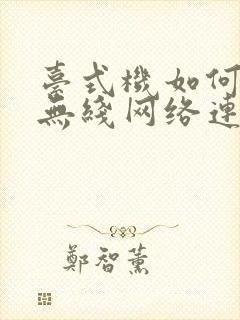 臺式機如何
無綫网络連
鄭智薰